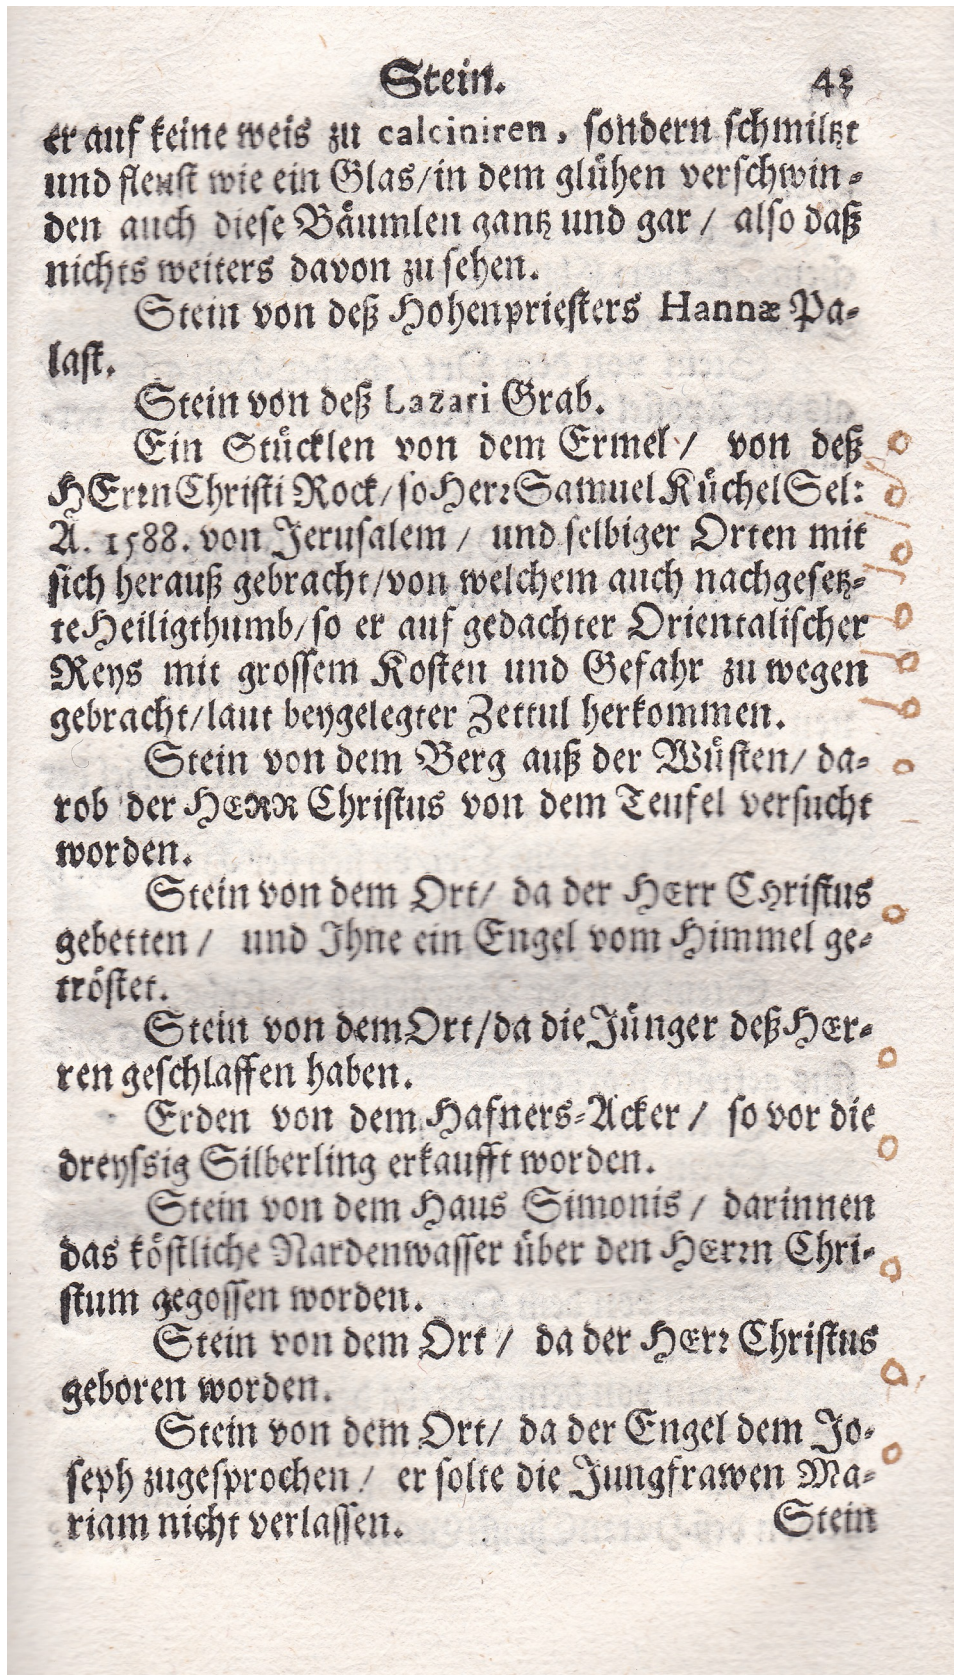 Stein. 43
er auf keine weis zu calciniren, sondern schmiltzt
und fleust wie ein Glas/in dem glühen verschwin-
den auch diese Bäumlen gantz und gar / also daß
nichts weiters davon zu sehen.
Stein von deß Hohenpriesters Hannæ Pa-
last.
Stein von deß Lazari Grab.
Ein Stücklen von dem Ermel / von deß
HErrn Christi Rock/ so Herr Samuel Küchel Sel:
A. 1588. von Jerusalem / und selbiger Orten mit
sich herauß gebracht/von welchem auch nachgesetz-
te Heiligthumb/so er auf gedachter Orientalischer
Reys mit grossem Kosten und Gefahr zu wegen
gebracht/laut beygelegter Zettul herkommen.
Stein von dem Berg auß der Wüsten/ da-
rob der HERR Christus von dem Teufel versucht
worden.
Stein von dem Ort/ da der HErr Christus
gebetten / und Ihne ein Engel vom Himmel ge-
tröstet.
Stein von dem Ort/da die Jünger deß HEr-
ren geschlaffen haben.
Erden von dem Hafners-Acker / so vor die
dreyssig Silberling erkaufft worden.
Stein von dem Haus Simonis / darinnen
das köstliche Nardenwasser über den HErrn Chri-
stum gegossen worden.
Stein von dem Ort / da der HErr Christus
geboren worden.
Stein von dem Ort/ da der Engel dem Jo-
seph zugesprochen / er solte die Jungfrawen Ma-
riam nicht verlassen. Stein